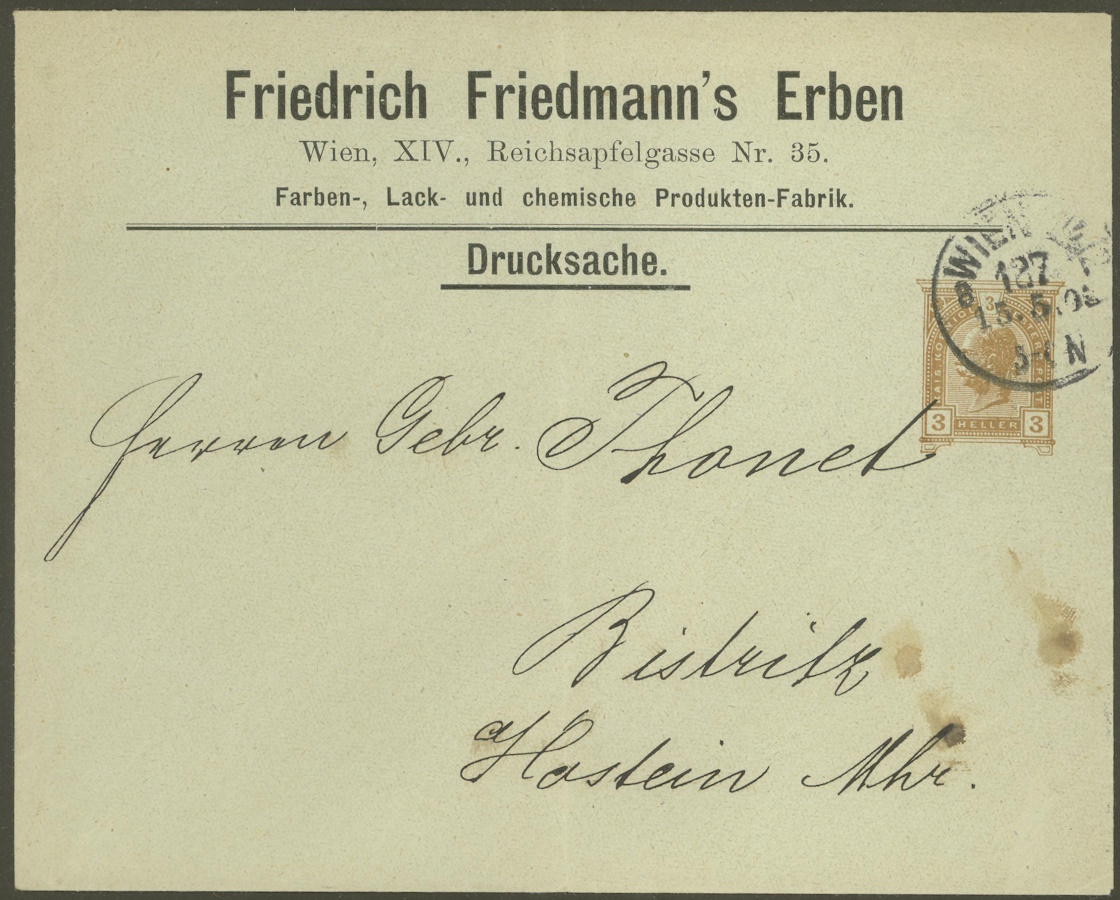 Friedrich Friedmann's Erben
Wien, XIV., Reichsapfelgasse Nr. 35.
Farben-, Lack- und chemische Produkten-Fabrik.
Drucksache.
WIEN
127
15.5.0
N
3
3 HELLER 3
Herren Gebr. Thonet
Bistritz
a/Hostein Mhr.